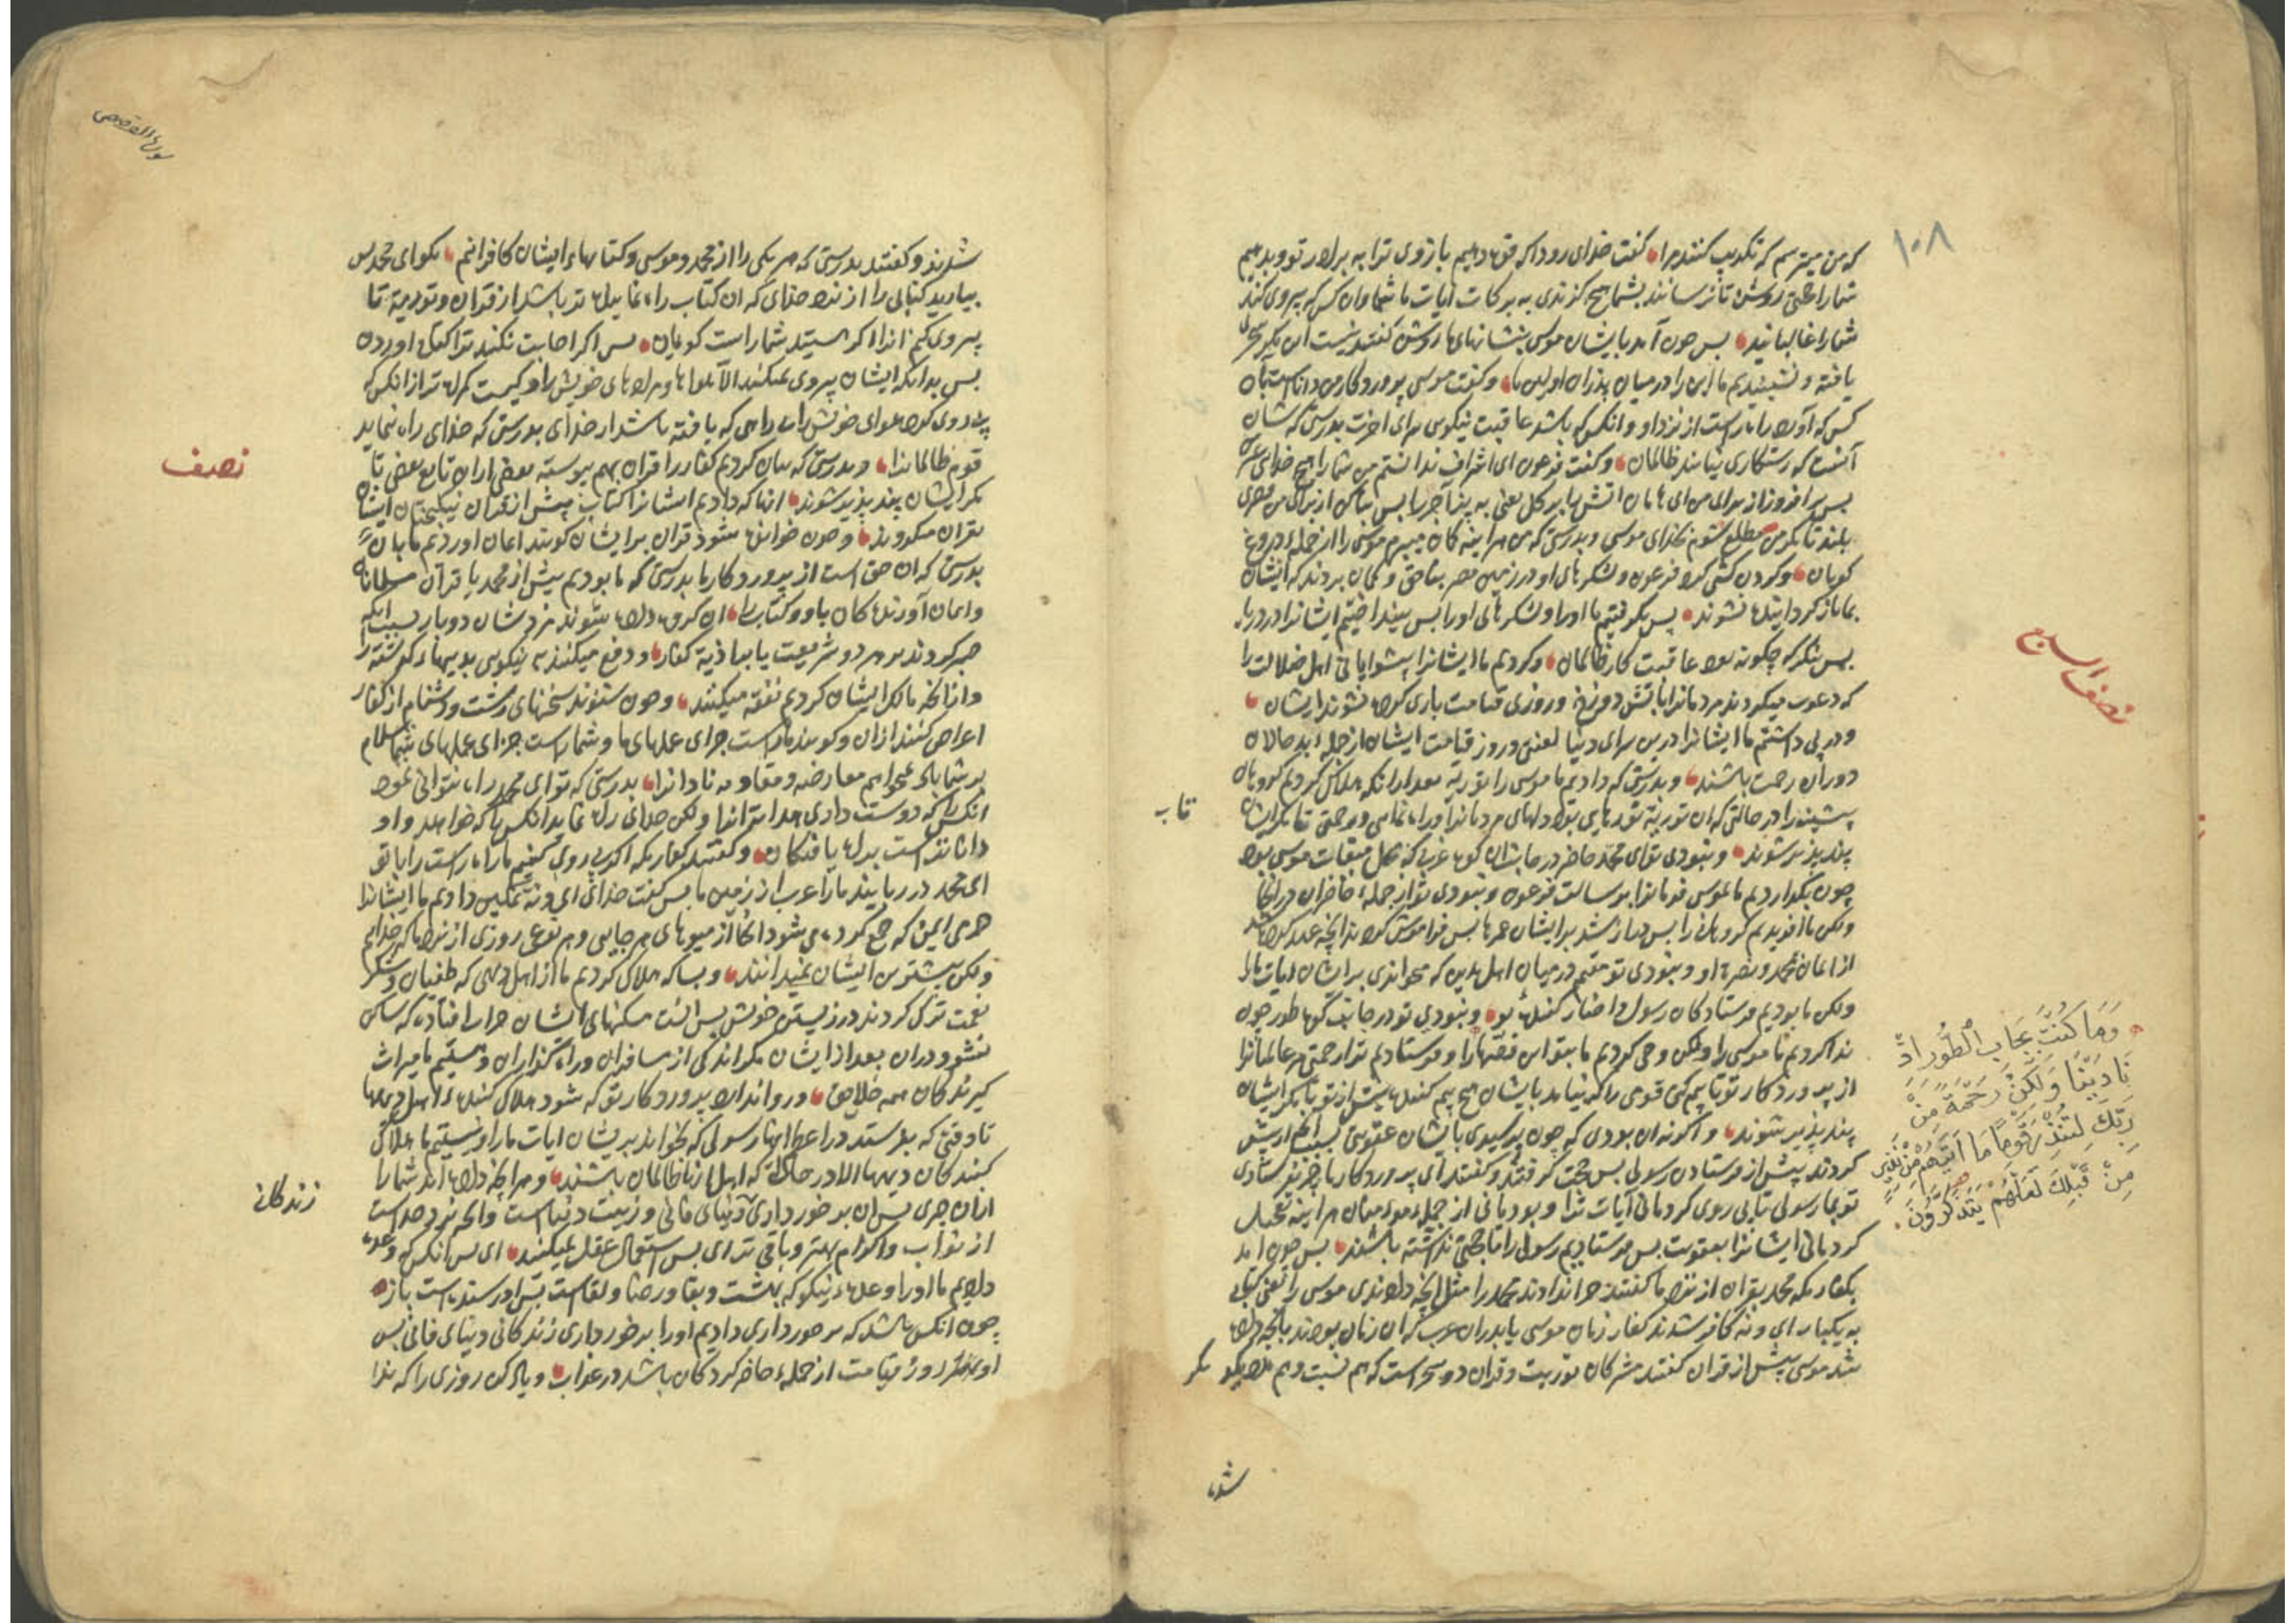 ۱۰۸
که من میترسم که تکذیب کنند مرا گفت خدای زود که قوة دهیم بازوی ترا به برادر تو و بدهیم
شما را حجتی روشن تا نرسانند بشما هیچ گزندی به برکات آیات ما شما و آن کس که پیروی کند
شما را غالبانید بس چون آمد بایشان موسی بنشانهای روشن گفتند نیست این مگر سحری
یافته و نشنیدیم ما این را در میان پدران اولین ما و گفت موسی پروردگار من داناست بآن
کس که آورد راه راست از نزد او و انکس که باشد عاقبت نیکوس سرای اخرت بدرستی که شان
آنست که رستکاری نیابند ظالمان و گفت فرعون ای اشراف ندانستم من شما را هیچ خدای غیر من
بس بر افروز از برای من ای هامان اتش را بر کل یعنی به پز آجر را بس بنا کن از برای من قصری
بلند تا مکر من مطلع شوم بخدای موسی و بدرستی که من هراینه کمان میبرم موسی را از جمله دروغ
کویان و کردن کشی کرد فرعون و لشکرهای او در زمین مصر بناحق و کمان بردند که ایشان
بما باز کردانیده نشوند پس بکرفتیم ما او را و لشکرهای او را بس بینداختیم ایشانرا در دریا
بس بنکر که چکونه بود عاقبت کار ظالمان و کردیم ما ایشانرا پیشوایانی اهل ضلالت را
که دعوت میکردند مردمانرا باتش دوزخ و روزی قیامت یاری کرده نشوند ایشان
و در پی داشتیم ما ایشانرا درین سرای دنیا لعنتی و روز قیامت ایشان از جمله بد حالان
دوران رحمت باشند و بدرستی که دادیم ما موسی را توریة بعد از آنکه هلاک کردیم کروهان
پیشین را در حالتی که ان توریة نورهای بود دلهای مردمانرا و راه نمایی و رحمتی تا مکر ایشان
پند پذیر شوند و نبودی تو ای محمد حاضر در جانب ان کوه غربی که محل میقات موسی بود
چون بکزاردیم ما بموسی فرمانرا برسالت فرعون و نبودی تو از جمله حاضران در انجا
ولکن ما آفریدیم کروهانی را بس دراز شد برایشان عمرها بس فراموش کردند انچه عهد کرده شد
از ایمان بمحمد و نصرة او و نبودی تو مقیم در میان اهل مدین که میخواندی بر ایشان ایات ما را
ولکن ما بودیم فرستادکان رسول و اخبار کننده بتو و نبودی تو در جانب کوه طور چون
ندا کردیم ما موسی را ولکن وحی کردیم ما بتو این قصهها را و فرستادیم ترا رحمتی مر عالمانرا
از پروردکار تو تا بیم کنی قومی را که نیامد بایشان هیچ بیم کننده پیش از تو تا مکر ایشان
پند پذیر شوند و اکر نه ان بودی که چون برسیدی بایشان عقوبتی بسبب انچه از پیش
کردند پیش از فرستادن رسول بس حجت کرفتند و کفتند ای پروردکار ما چرا نفرستادی
تو بما رسولی تا پی روی کردمانی آیات ترا و بودمانی از جمله مومنان هراینه تعجیل
کردمانی ایشانرا بعقوبت بس فرستادیم رسول را تا حجتی نداشته باشند بس چون امد
بکفار مکه محمد بقران از نزد ما کفتند چرا ندادند محمد را مثل انچه دادندی موسی را یعنی کتابی
به یکبار ای و نه کافر شدند کفار زمان موسی یا پدران عرب که ان زمان بودند بانچه داده
شد موسی پیش از قران کفتند مشرکان توریت و قران دو سحر است که هم نسبت و هم
مکر
تاب
نصف السبع
وَمَا كُنْتَ بِجَانِبِ الطُّورِ اِذْ
نَادَيْنَا وَلَكِنْ رَحْمَةً مِنْ
رَبِّكَ لِتُنْذِرَ قَوْمًا مَا اَتَيهُمْ مِنْ نَذِيرٍ
مِنْ قَبْلِكَ لَعَلَّهُمْ يَتَذَكَّرُونَ
شدند
سورة القصص
شدند و کفتند بدرستی که هر یکی را از محمد و موسی و کتابهاء ایشان کافرانیم بکو ای محمد بس
بیارید کتابی را از نزد خدای که ان کتاب راه نماینده تر باشد از قران و توریة تا
پیروی کنم انرا اکر هستید شما راست کویان بس اکر اجابت نکنند ترا کتاب اوردن
بس بدانکه ایشان پیروی نمیکنند الا هواها و مرادهای خویش را و کیست کمراه تر از انکس که
پی روی کرد هوای خویش را بی راهی که یافته باشد از خدای بدرستی که خدای راه ننماید
قوم ظالمانرا و بدرستی که بیان کردیم کفار را قران بهم پیوسته بعضی از ان تابع بعضی تا
مکر ایشان پند پذیر شوند انها که دادیم ایشانرا کتاب پیش از قران نیکبختان ایشان
بقران میکروند و چون خوانده شود قران بر ایشان کویند ایمان اوردیم ما بان
بدرستی که ان حق است از پروردکار ما بدرستی که ما بودیم پیش از محمد یا قرآن مسلمانان
و ایمان آورندکان باو و کتاب را ان کروه داده شوند مزدشان دوبار بسبب انکه
صبر کردند بر هر دو شریعت یا بر اذیة کفار و دفع میکنند به نیکویی بدیهاء کذشته را
و از انچه مالک ایشان کردیم نفقه میکنند و چون شنوند سخنهای زشت و دشنام از کفار
اعراض کنند ازان و کویند ماراست جزای عملهای ما و شماراست جزای عملهای شما سلام
بر شما باد نمیخواهیم معارضه و مقاومه نادانرا بدرستی که تو ای محمد راه نتوانی نمود
انکس را که دوست داری هدایت انرا ولکن خدای راه نماید انکس را که خواهد و او
داناترست براه یافتکان و کفتند کفار مکه اکر پی روی کنیم ما راه راست را با تو
ای محمد در ربایند ما را عرب از زمین ما بس کفت خدای ای و نه تمکین دادیم ما ایشانرا
حرمی ایمن که جمع کرده می شود انجا از میوهای هر جایی و هر نوعی روزی از نزد ما که خداییم
ولکن بیشترین ایشان نمیدانند و بسا که هلاک کردیم ما از اهل دیهی که طغیان و شکر
نعمت ترک کردند در زیستن خویش بس انست مسکنهای ایشان خراب افتاده که ساکن
نشود دران بعد از ایشان مکر اندکی از مسافران و راه کذاران و هستیم ما میراث
کیرندکان همه خلایق و روا ندارد پروردکار تو که شود هلاک کننده اهل دیهها
تا وقتی که بفرستد در اعظم انها رسولی که بخواند بریشان ایات ما را و نیستیم ما هلاک
کنندکان دیهها الا در حالتی که اهل انها ظالمان باشند و هر انچه داده اند شما را
ازان چیزی بس ان برخورداری دنیای فانی و زینت دنیاست و انچه نزد خداست
از ثواب و اکرام بهتر و باقی تر ای بس استعمال عقل نمیکنید ای بس انکس که وعده
دادیم ما او را وعده نیکو که بهشت و بقا و رضا و لقاست بس او رسنده است بان
چون انکس باشد که برخورداری دادیم او را برخورداری زندکانی دنیای فانی بس
او بعد روز قیامت از جمله حاضر کردکان باشد در عذاب و یاد کن روزی را که ندا
نصف
زندکانی